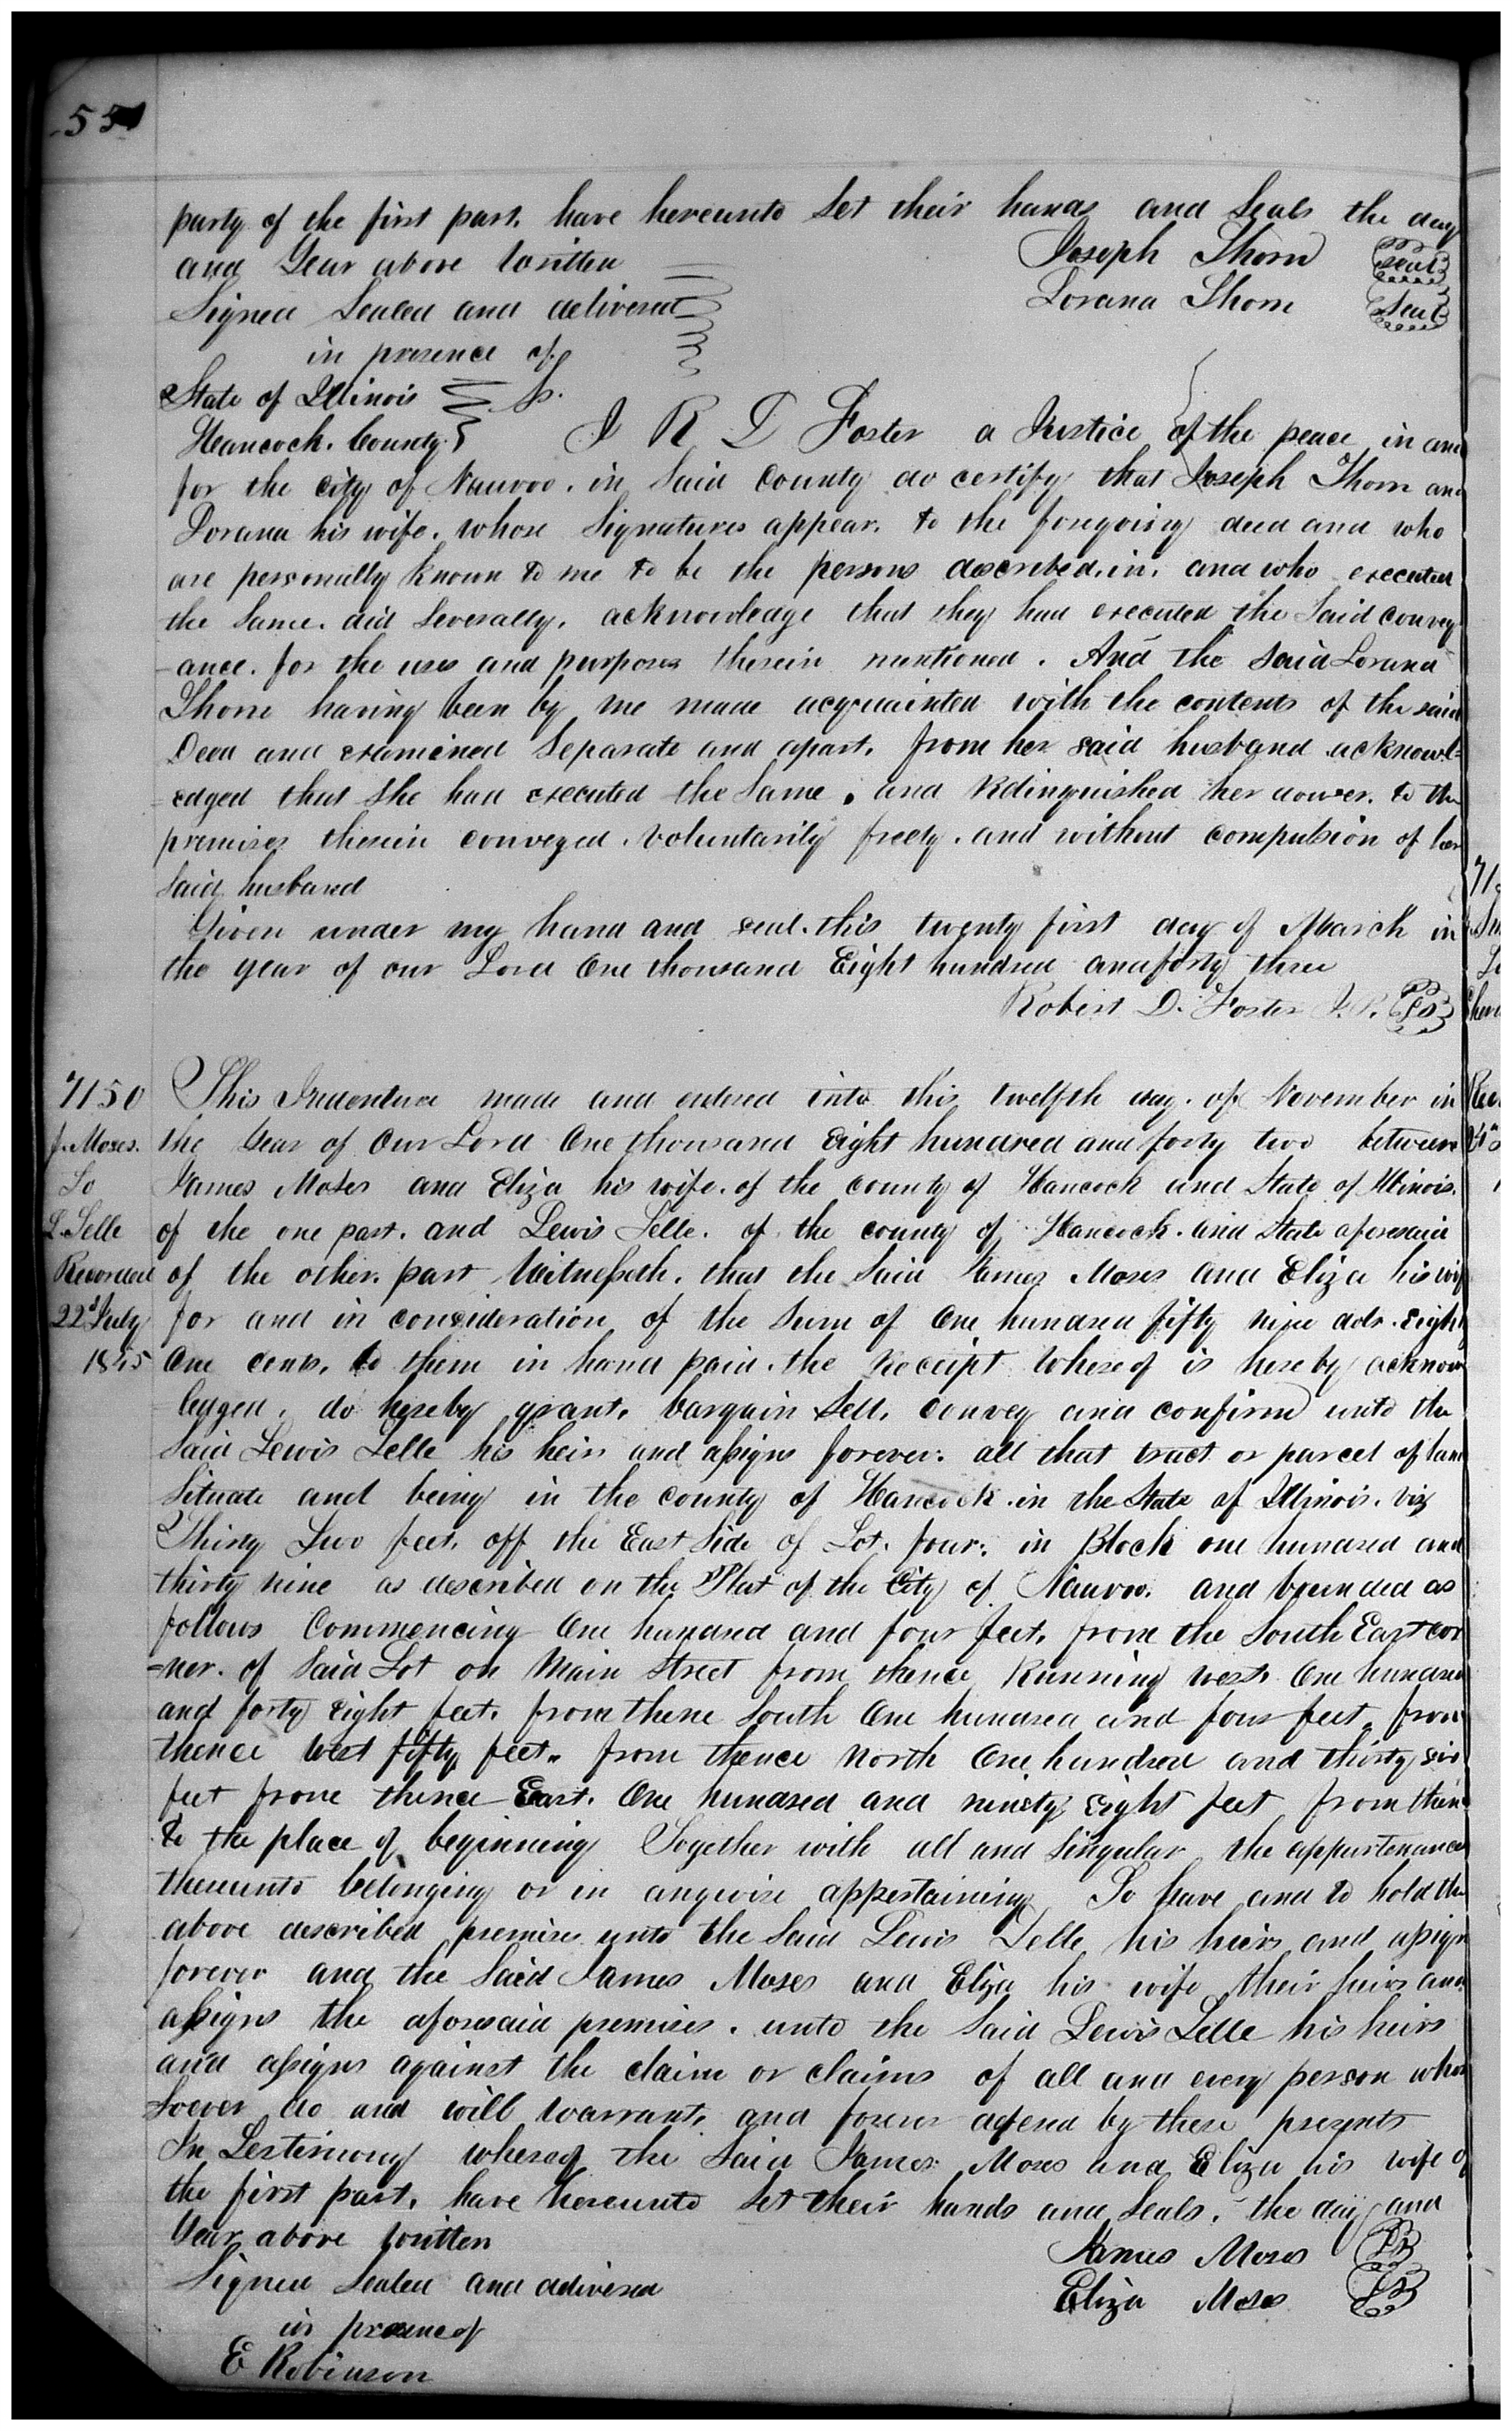 party of the first part. have hereunto Set their hands and Seals the day
and Year above written
Joseph Thorn seal
Signed Sealed and delivered
Lorana Thorn Seal
in presence of
State of Illinois Ss.
Hancock. County
I R D Foster a Justice of the peace in and
for the city of Nauvoo. in Said County do certify that Joseph Thorn and
Lorana his wife. whose Signatures appear. to the foregoing deed and who
are personally known to me to be the persons described. in. and who executed
the Same. did Severally. acknowledge that they had executed the Said convey
-ance. for the uses and purposes therein mentioned. And the said Lorana
Thorn having been by me made acquainted with the contents of the said
Deed and examined Separate and apart. from her said husband acknowl-
-edged that She had executed the Same. and Relinquished her dower. to the
premises therein conveyed. voluntarily freely. and without compulsion of her
Said husband
Given under my hand and seal. this twenty first day of March in
the year of our Lord One thousand Eight hundred and forty three
Robert D. Foster J. P. LS
7150
This Indenture made and entered into this twelfth day. of November in
J. Moses.
the Year of Our Lord One thousand Eight hundred and forty two between
To
James Moses and Eliza his wife. of the county of Hancock and State of Illinois.
L. Telle
of the one part. and Lewis Telle. of the county of Hancock. and State aforesaid
Recorded
of the other. part Witnesseth. that the Said James Moses and Eliza his wif
22d July
for and in consideration of the Sum of One hundred fifty nine dols. Eight
1845
One cents. to them in hand paid. the Receipt Whereof is hereby acknow
ledged. do hereby grant. bargain Sell. Convey and confirm unto the
Said Lewis Telle his heirs and assigns forever. all that tract or parcel of land
Situate and being in the county of Hancock. in the State of Illinois. viz
Thirty Two feet. off the East Side of Lot. four. in Block one hundred and
thirty nine as described on the Plat of the City of Nauvoo. and bounded as
follows Commencing One hundred and four feet. from the South East cor
-ner. of Said Lot on Main Street from thence Running west. One hundred
and forty eight feet. from thence South One hundred and four feet. from
thence West fifty feet. from thence North One hundred and thirty six
feet from thence East. One hundred and ninety Eight feet from thence
to the place of beginning Together with all and Singular the appurtenances
thereunto belonging or in anywise appertaining To have and to hold the
above described premises unto the Said Lewis Telle his heirs and assigns
forever and the Said James Moses and Eliza his wife their heirs and
assigns the aforesaid premises. unto the Said Lewis Telle his heirs
and assigns against the claim or claims of all and every person whom
Soever do and will warrant. and forever defend by these presents
In Testimony whereof the Said James Moses and Eliza his wife of
the first part. have hereunto Set their hands and Seals. the day and
Year above written
James Moses LS
Signed Sealed and delivered
Eliza Moses LS
in presence of
E Robinson